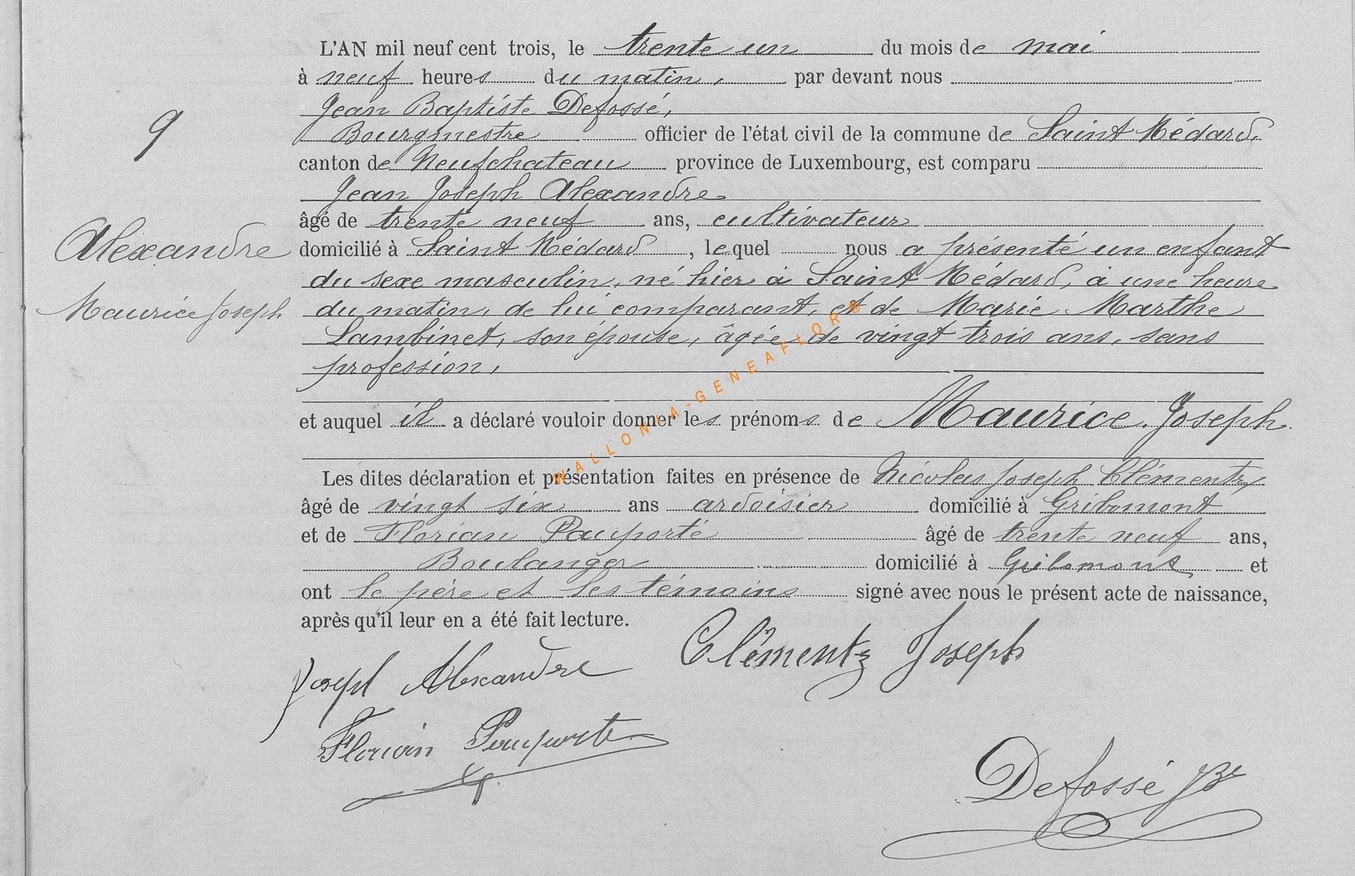 L'AN mil neuf cent trois, le trente un du mois de mai
à neuf heures du matin, par devant nous
Jean Baptiste Defossé,
Bourgmestre officier de l'état civil de la commune de Saint Médard,
canton de Neufchateau province de Luxembourg, est comparu
Jean Joseph Alexandre
âgé de trente neuf ans, cultivateur
domicilié à Saint Médard, lequel nous a présenté un enfant
du sexe masculin, né hier à Saint Médard, à une heure
du matin, de lui comparant, et de Marie Marthe
Lambinet, son épouse, âgée de vingt trois ans, sans
profession,
et auquel il a déclaré vouloir donner les prénoms de Maurice Joseph.
Les dites déclaration et présentation faites en présence de Nicolas Joseph Clémentz
âgé de vingt six ans ardoisier domicilié à Gribomont
et de Florian Pauporté âgé de trente neuf ans,
Boulanger domicilié à Gribomont et
ont le père et les témoins signé avec nous le présent acte de naissance,
après qu'il leur en a été fait lecture.
9
Alexandre
Maurice Joseph
Joseph Alexandre Clémentz Joseph
Florian Pauporté
Defossé JBte
WALLONIA-GENEAFLORE